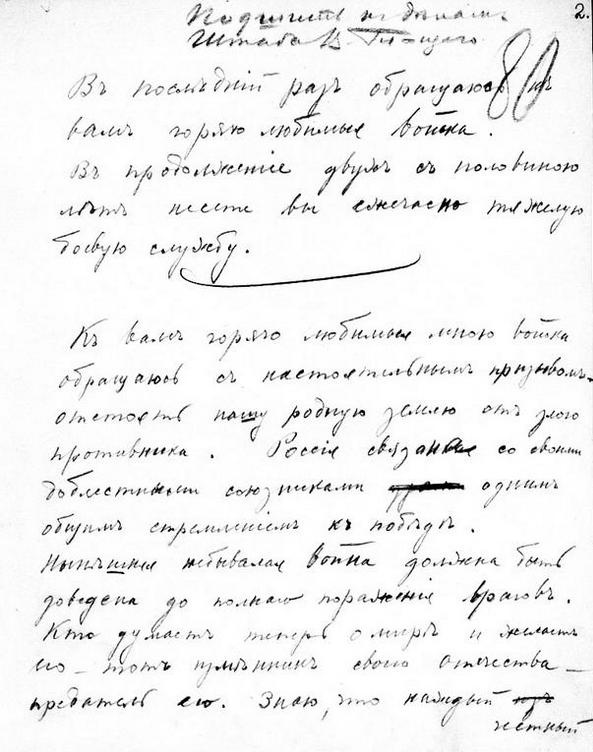 2.
80
Въ послѣдній разъ обращаюсь къ
вамъ горячо любимые войска.
Въ продолженіе двухъ съ половиною
лѣтъ несете вы ежечасно тяжелую
боевую службу.
Къ вамъ горячо любимыя мною войска
обращаюсь съ настоятельнымъ призывомъ
отстоять нашу родную землю отъ злого
противника. Россія связана со своими
доблестными союзниками однимъ
общимъ стремленіемъ къ побѣдѣ.
Нынѣшняя небывалая война должна быть
доведена до полнаго пораженія враговъ.
Кто думаетъ теперь о мирѣ и желаетъ
его – тотъ измѣнникъ своего отечества –
предатель его. Знаю, что каждый
честный